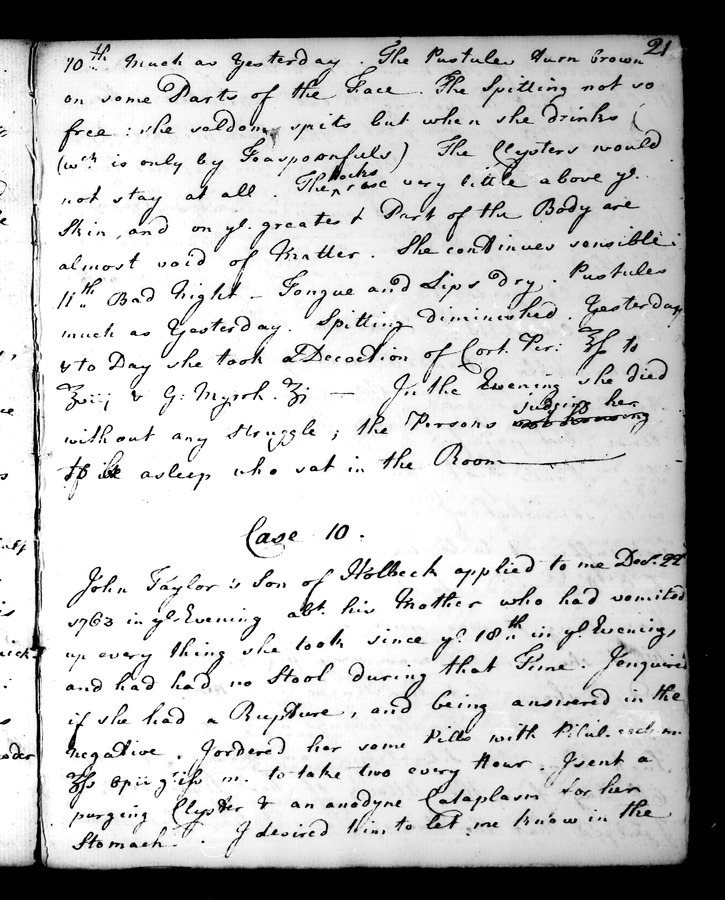 21
10th Much as Yesterday. The Pustules turn brown
on some Parts of the Face. The Spitting not so
free: she seldom spits but when she drinks
(wch. is only by Teaspoonfuls) The Clysters would
not stay at all. The Pocks rose very little above ye.
Skin, and on ye. greatest Part of the Body are
almost void of Matter. She continues sensible.
11th Bad Night - Tongue and Lips dry. Pustules
much as Yesterday. Spitting diminished. Yesterday
& to Day she took a Decoction of Cort. Per: ℥ss to
℥viij & G: Myrrh. ʒj — In the Evening she died
without any struggle; the Persons judging her
to be asleep who sat in the Room
Case 10.
John Taylor's Son of Holbeck applied to me Decr. 22d
1763 in ye. Evening abt. his Mother who had vomited
up every thing she took since ye. 18th in ye. Evening,
and had had no Stool during that Time. I enquired
if she had a Rupture, and being answered in the
negative. I ordered her some Pills with Pilul.
to take two every Hour. I sent a
purging Clyster & an anodyne Cataplasm for her
Stomach. I desired him to let me know in the